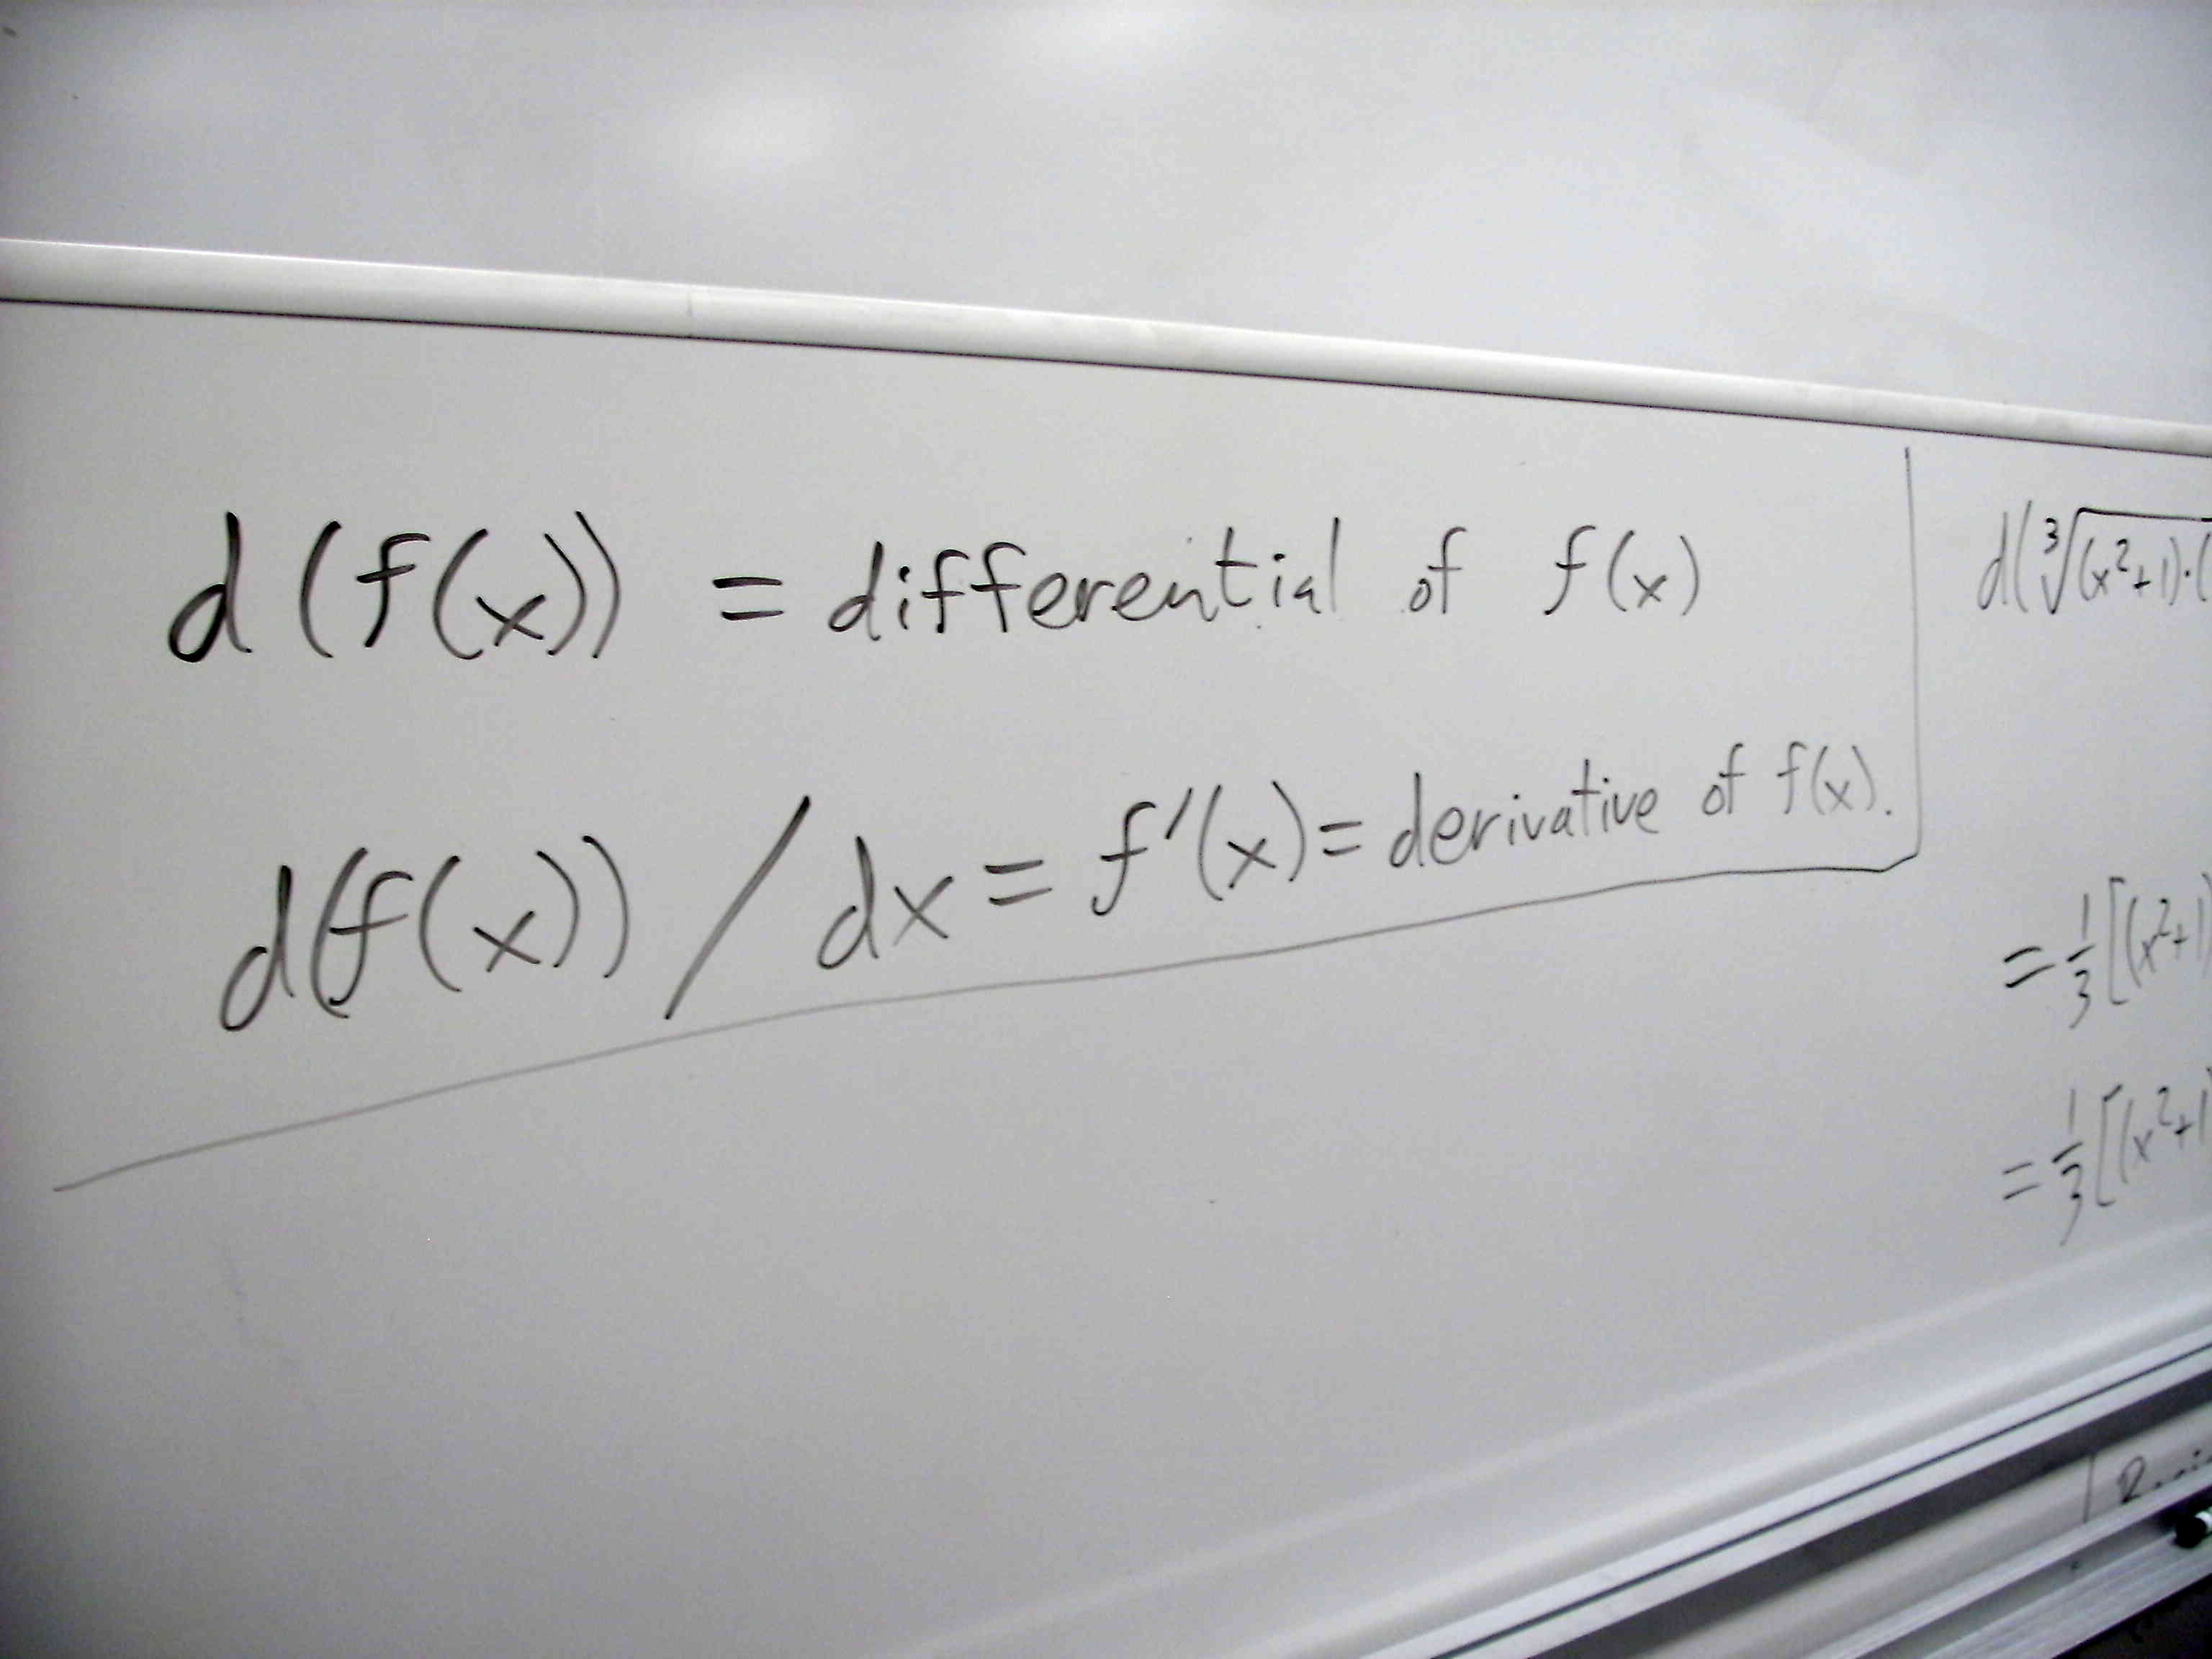 d(f(x)) = differential of f(x)
d(f(x)) / dx = f'(x) = derivative of f(x).
d(∛(x²+1)·(
= 1/3 [(x²+1)
= 1/3 [(x²+1)